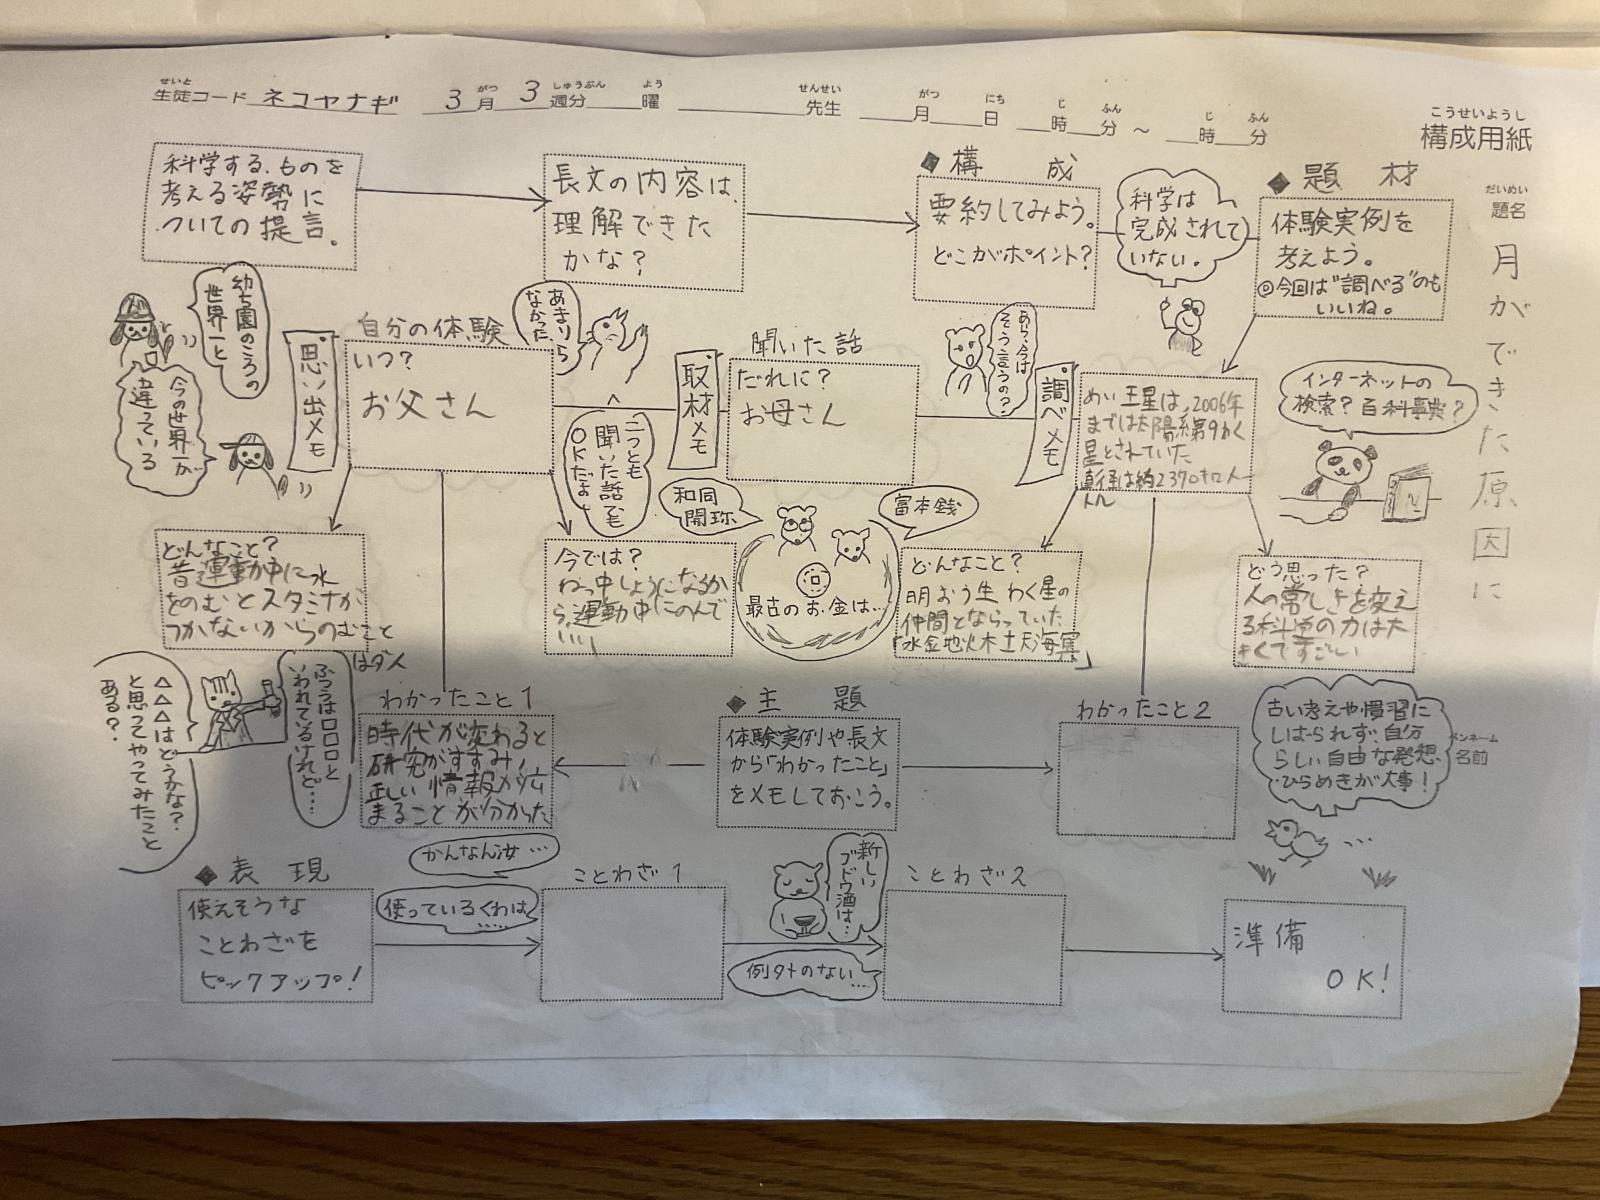 生徒コード ネコヤナギ 3月 3週分 曜 先生 月 日 時 分 ～ 時 分
せいと がつ しゅうぶん よう せんせい がつ にち じ ふん じ ふん
こうせいようし
構成用紙
だいめい
題名
月ができた原因に
科学する、ものを
考える姿勢に
ついての提言。
長文の内容は、
理解できた
かな？
◆構 成
要約してみよう。
どこがポイント？
科学は
完成されて
いない。
◆題 材
体験実例を
考えよう。
◎今回は“調べる”のも
いいね。
幼ち園のころの
世界一と
今の世界一が
違っている
思い出メモ
自分の体験
いつ？
お父さん
あまり
なかったら
二つとも
聞いた話でも
OKだよ
取材メモ
聞いた話
だれに？
お母さん
あら、今は
そう言うの？
調べメモ
めい王星は、2006年
までは太陽系第9わく
星とされていた
直径は約2370キロメー
トル
インターネットの
検索？百科事典？
どんなこと？
昔運動中に水
をのむとスタミナが
つかないからのむこと
はダメ
今では？
ねっ中しょうになるか
ら、運動中にのんで
いい
和同
開珎
富本銭
最古のお金は…
どんなこと？
明おう生 わく星の
仲間とならっていた
「水金地火木土天海冥」
どう思った？
人の常しきを変え
る科学の力は大
きくてすごい
ふつうは□□□□と
いわれているけれど…
△△△はどうかな？
と思ってやってみたこと
ある？
わかったこと1
時代が変わると
研究がすすみ、
正しい情報が広
まることが分かった
◆主 題
体験実例や長文
から「わかったこと」
をメモしておこう。
わかったこと2
古い考えや慣習に
しばられず、自分
らしい自由な発想、
ひらめきが大事！
ペンネーム
名前
◆表 現
使えそうな
ことわざを
ピックアップ！
かんなん汝…
使っているくわは……
ことわざ1
新しい
ブドウ酒は…
例外のない……
ことわざ2
準備
OK！